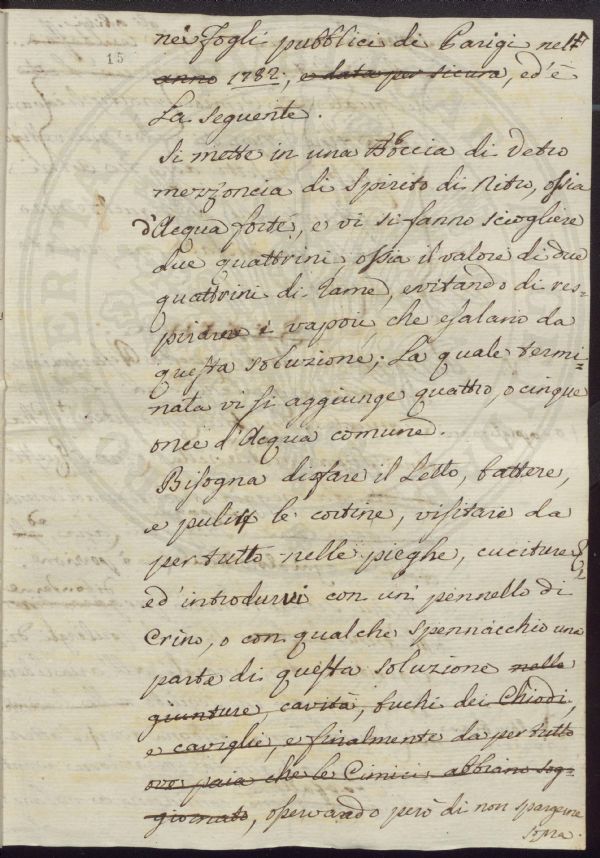 nei Fogli pubblici di Parigi nell'
15
anno 1782, e data per sicura, ed'è
La seguente.
Si mette in una Boccia di Vetro
mezz'oncia di Spirito di Nitro, ossia
d'Acqua forte, e vi si fanno sciogliere
due quattrini, ossia il valore di due
quattrini di Rame, evitando di res=
pirare i vapori, che esalano da
questa soluzione; La quale termi=
nata vi si aggiunge quattro, o cinque
once d'Acqua comune.
Bisogna disfare il Letto, battere,
e pulire le cortine, visitare da
per tutto nelle pieghe, cuciture &
ed'introdurvi con un' pennello di
Crino, o con qualche spennacchio una
parte di questa soluzione nelle
giunture, cavità, buchi dei Chiodi,
e caviglie, e finalmente da per tutto
ove paia che le Cimici abbiano sog=
giornato, osservando però di non spargerne
sopra